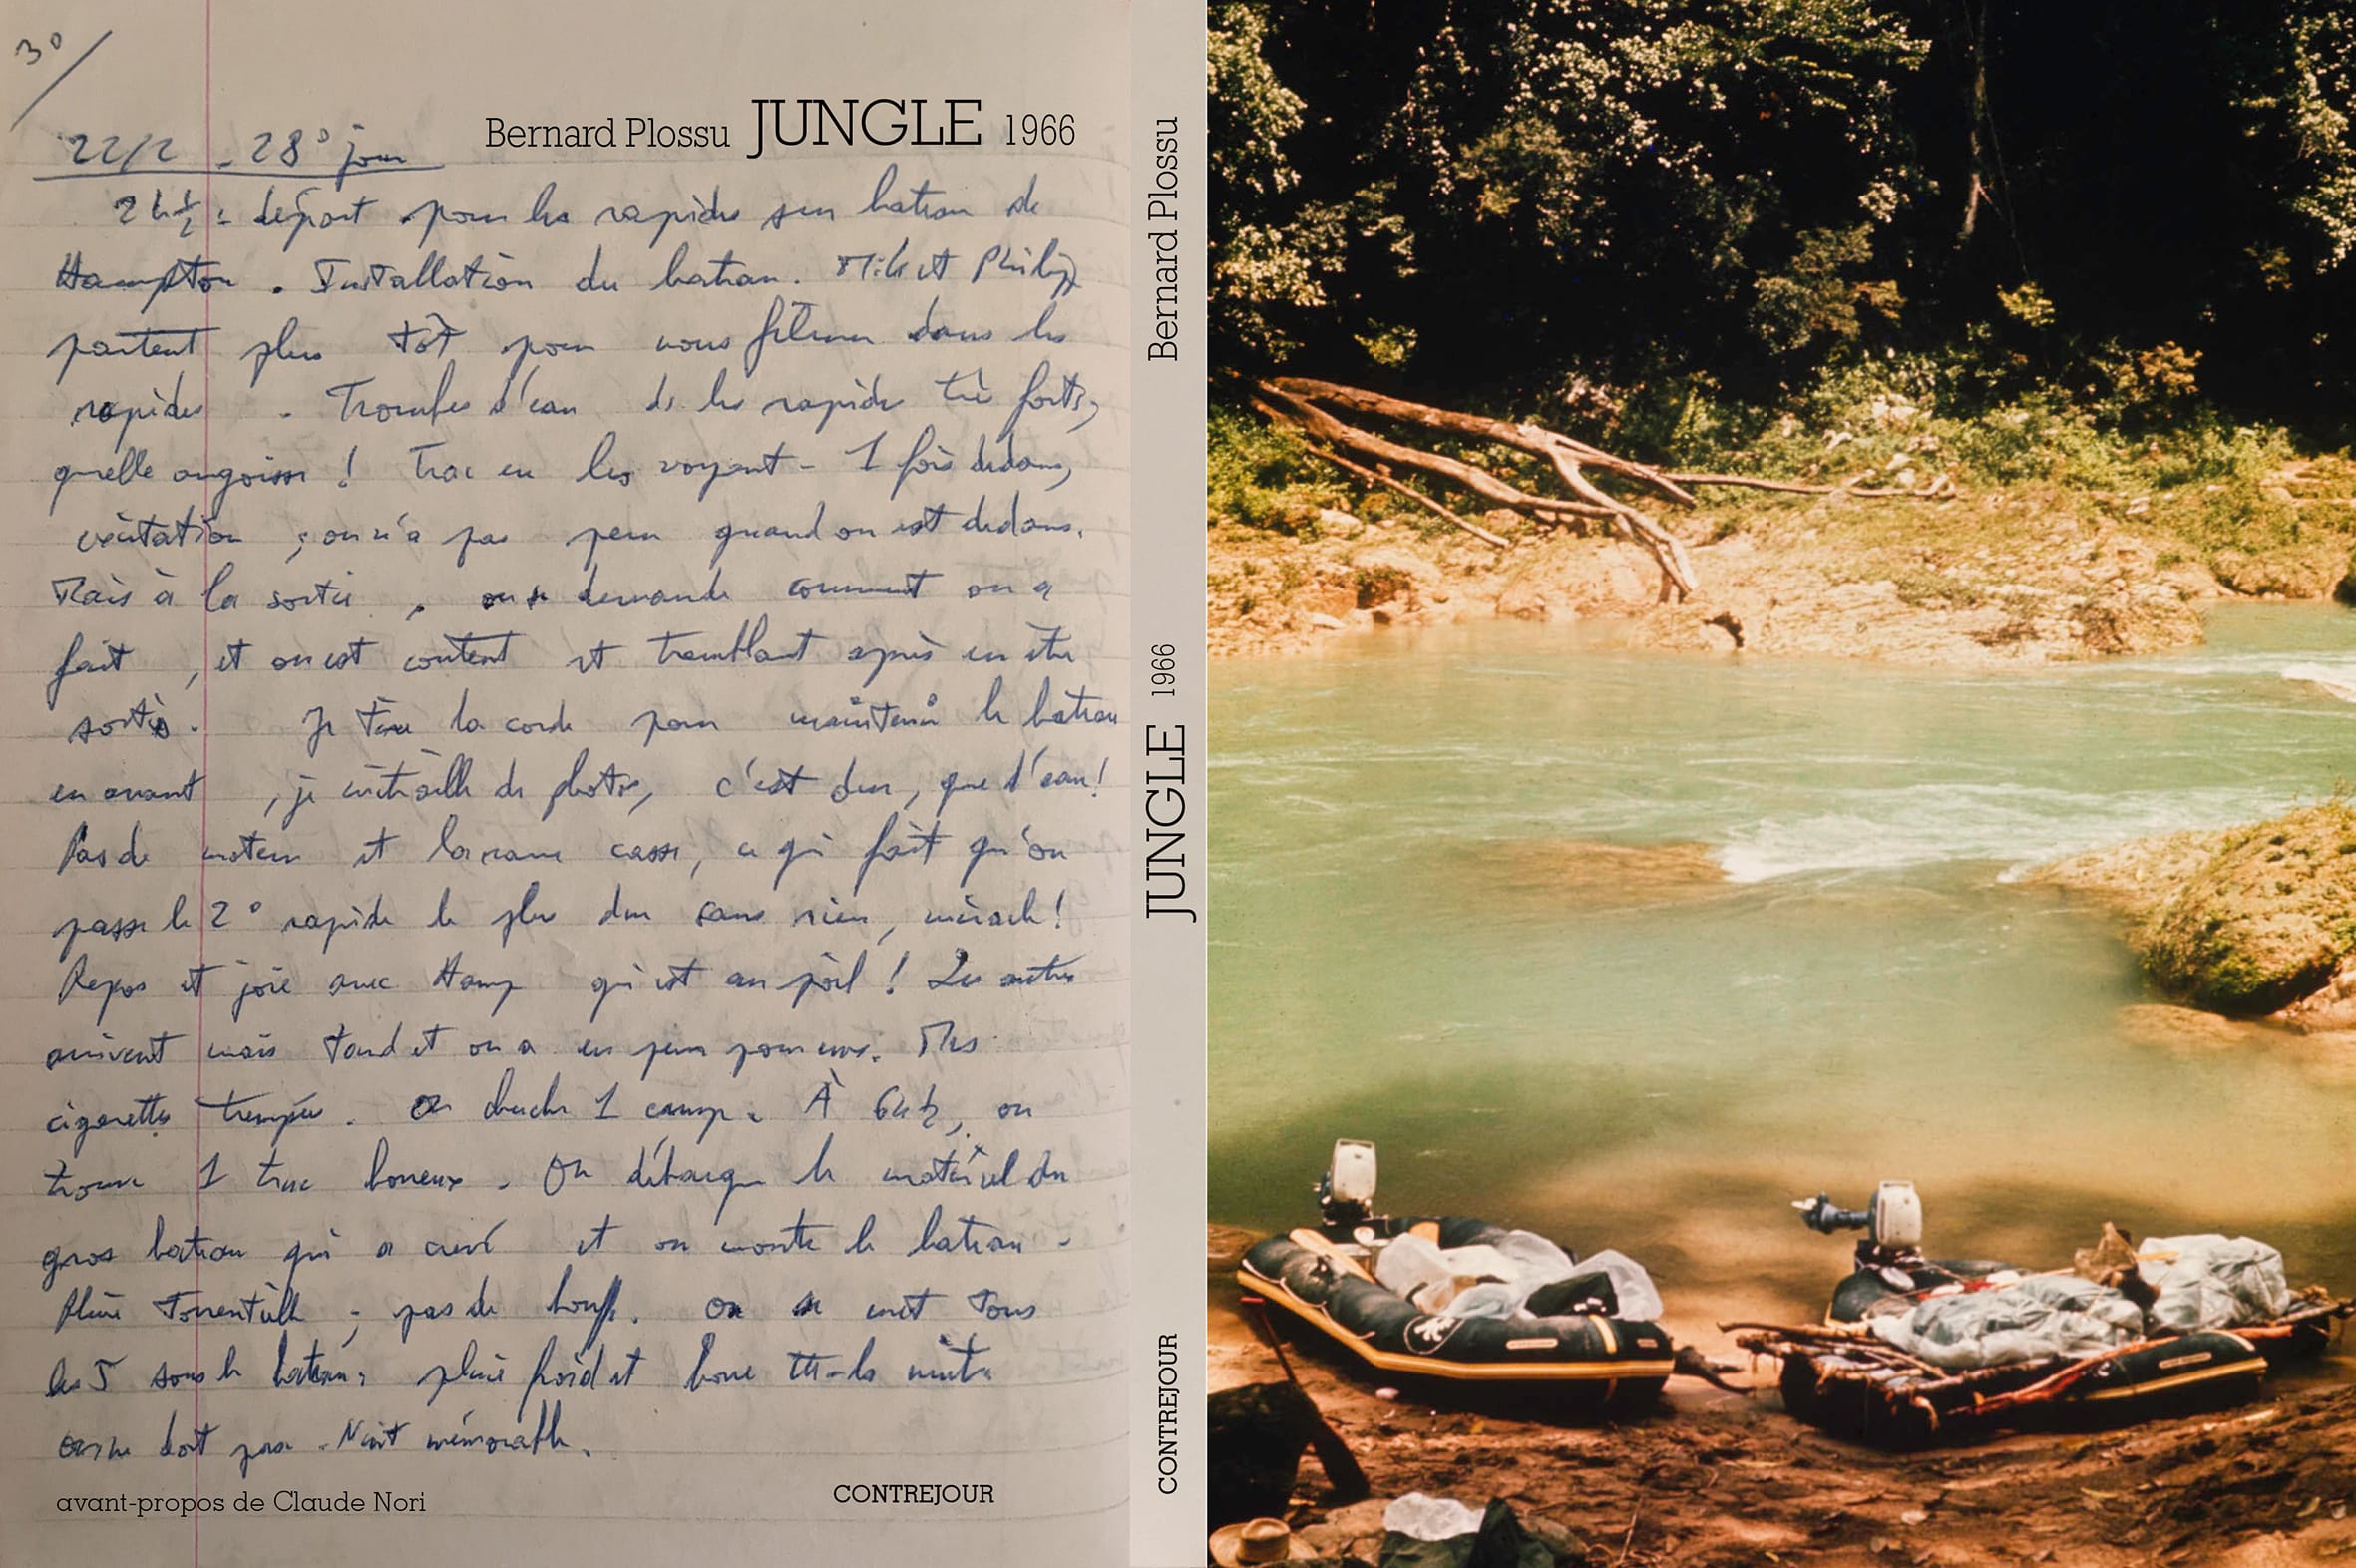 30/
Bernard Plossu JUNGLE 1966
22/2 - 28° jour
2h½ : départ pour les rapides sur bateau de
Hampton. Installation du bateau. Mike et Philip
partent plus tôt pour nous filmer dans les
rapides - Trombes d'eau ds les rapides très forts,
quelle angoisse ! Trac en les voyant - 1 fois dedans,
excitation ; on n'a pas peur quand on est dedans.
Mais à la sortie, on se demande comment on a
fait, et on est content et tremblant après en être
sortis. Je tire la corde pour maintenir le bateau
en avant, je mitraille de photos, c'est dur, que d'eau !
Pas de moteur et la rame casse, ce qui fait qu'on
passe le 2° rapide le plus dur sans rien, miracle !
Repos et joie avec Hamp qui est au poil ! Les autres
arrivent mais tard et on a eu peur pour eux. Mes
cigarettes trempées. On cherche 1 camp. À 6h½, on
trouve 1 truc boueux. On débarque le matériel du
gros bateau qui a crevé et on monte le bateau -
Pluie torrentielle ; pas de bouffe. On se met tous
les 5 sous le bateau ; pluie froid et boue tte la nuit.
on ne dort pas. Nuit mémorable.
avant-propos de Claude Nori
CONTREJOUR
Bernard Plossu
JUNGLE 1966
CONTREJOUR